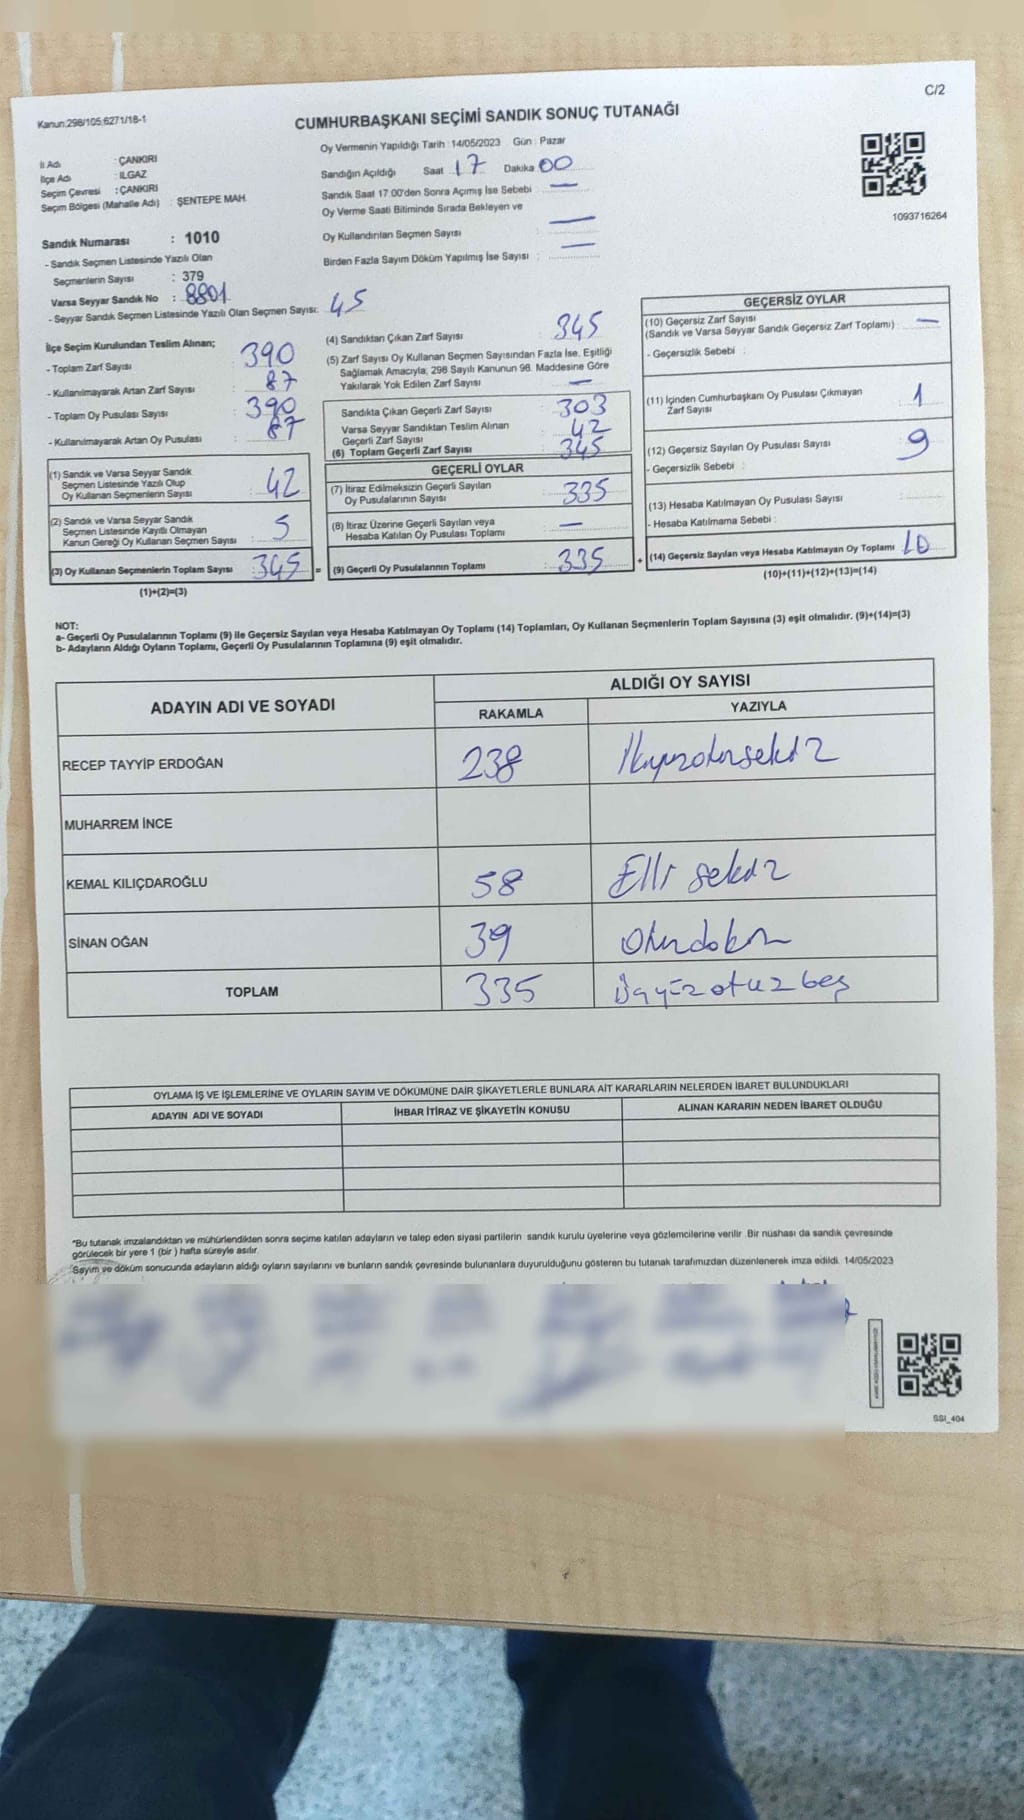 C/2
Kanun:298/105;6271/18-1
CUMHURBAŞKANI SEÇİMİ SANDIK SONUÇ TUTANAĞI
İl Adı : ÇANKIRI
İlçe Adı : ILGAZ
Seçim Çevresi : ÇANKIRI
Seçim Bölgesi (Mahalle Adı) : ŞENTEPE MAH.
Oy Vermenin Yapıldığı Tarih : 14/05/2023 Gün : Pazar
Sandığın Açıldığı Saat : 17 Dakika : 00
Sandık Saat 17:00'den Sonra Açımış İse Sebebi : —
Oy Verme Saati Bitiminde Sırada Bekleyen ve
Oy Kullandırılan Seçmen Sayısı : —
Birden Fazla Sayım Döküm Yapılmış İse Sayısı : —
1093716264
Sandık Numarası : 1010
- Sandık Seçmen Listesinde Yazılı Olan
Seçmenlerin Sayısı : 379
Varsa Seyyar Sandık No : 8801
- Seyyar Sandık Seçmen Listesinde Yazılı Olan Seçmen Sayısı: 45
İlçe Seçim Kurulundan Teslim Alınan;
- Toplam Zarf Sayısı : 390
- Kullanılmayarak Artan Zarf Sayısı : 87
- Toplam Oy Pusulası Sayısı : 390
- Kullanılmayarak Artan Oy Pusulası : 87
(1) Sandık ve Varsa Seyyar Sandık
Seçmen Listesinde Yazılı Olup
Oy Kullanan Seçmenlerin Sayısı : 42
(2) Sandık ve Varsa Seyyar Sandık
Seçmen Listesinde Kayıtlı Olmayan
Kanun Gereği Oy Kullanan Seçmen Sayısı : 5
(3) Oy Kullanan Seçmenlerin Toplam Sayısı : 345 =
(1)+(2)=(3)
(4) Sandıktan Çıkan Zarf Sayısı : 345
(5) Zarf Sayısı Oy Kullanan Seçmen Sayısından Fazla İse, Eşitliği
Sağlamak Amacıyla; 298 Sayılı Kanunun 98. Maddesine Göre
Yakılarak Yok Edilen Zarf Sayısı : —
Sandıkta Çıkan Geçerli Zarf Sayısı : 303
Varsa Seyyar Sandıktan Teslim Alınan
Geçerli Zarf Sayısı : 42
(6) Toplam Geçerli Zarf Sayısı : 345
GEÇERLİ OYLAR
(7) İtiraz Edilmeksizin Geçerli Sayılan
Oy Pusulalarının Sayısı : 335
(8) İtiraz Üzerine Geçerli Sayılan veya
Hesaba Katılan Oy Pusulası Toplamı : —
(9) Geçerli Oy Pusulalarının Toplamı : 335 +
GEÇERSİZ OYLAR
(10) Geçersiz Zarf Sayısı
(Sandık ve Varsa Seyyar Sandık Geçersiz Zarf Toplamı) : —
- Geçersizlik Sebebi :
(11) İçinden Cumhurbaşkanı Oy Pusulası Çıkmayan
Zarf Sayısı : 1
(12) Geçersiz Sayılan Oy Pusulası Sayısı : 9
- Geçersizlik Sebebi :
(13) Hesaba Katılmayan Oy Pusulası Sayısı :
- Hesaba Katılmama Sebebi :
(14) Geçersiz Sayılan veya Hesaba Katılmayan Oy Toplamı : 10
(10)+(11)+(12)+(13)=(14)
NOT:
a- Geçerli Oy Pusulalarının Toplamı (9) ile Geçersiz Sayılan veya Hesaba Katılmayan Oy Toplamı (14) Toplamları, Oy Kullanan Seçmenlerin Toplam Sayısına (3) eşit olmalıdır. (9)+(14)=(3)
b- Adayların Aldığı Oyların Toplamı, Geçerli Oy Pusulalarının Toplamına (9) eşit olmalıdır.
ADAYIN ADI VE SOYADI ALDIĞI OY SAYISI
RAKAMLA YAZIYLA
RECEP TAYYİP ERDOĞAN 238 İkiyüzotuzsekiz
MUHARREM İNCE
KEMAL KILIÇDAROĞLU 58 Elli sekiz
SİNAN OĞAN 39 Otuzdokuz
TOPLAM 335 Üçyüzotuzbeş
OYLAMA İŞ VE İŞLEMLERİNE VE OYLARIN SAYIM VE DÖKÜMÜNE DAİR ŞİKAYETLERLE BUNLARA AİT KARARLARIN NELERDEN İBARET BULUNDUKLARI
ADAYIN ADI VE SOYADI İHBAR İTİRAZ VE ŞİKAYETİN KONUSU ALINAN KARARIN NEDEN İBARET OLDUĞU
*Bu tutanak imzalandıktan ve mühürlendikten sonra seçime katılan adayların ve talep eden siyasi partilerin sandık kurulu üyelerine veya gözlemcilerine verilir. Bir nüshası da sandık çevresinde
görülecek bir yere 1 (bir ) hafta süreyle asılır.
Sayım ve döküm sonucunda adayların aldığı oyların sayılarını ve bunların sandık çevresinde bulunanlara duyurulduğunu gösteren bu tutanak tarafımızdan düzenlenerek imza edildi. 14/05/2023
SSI_404